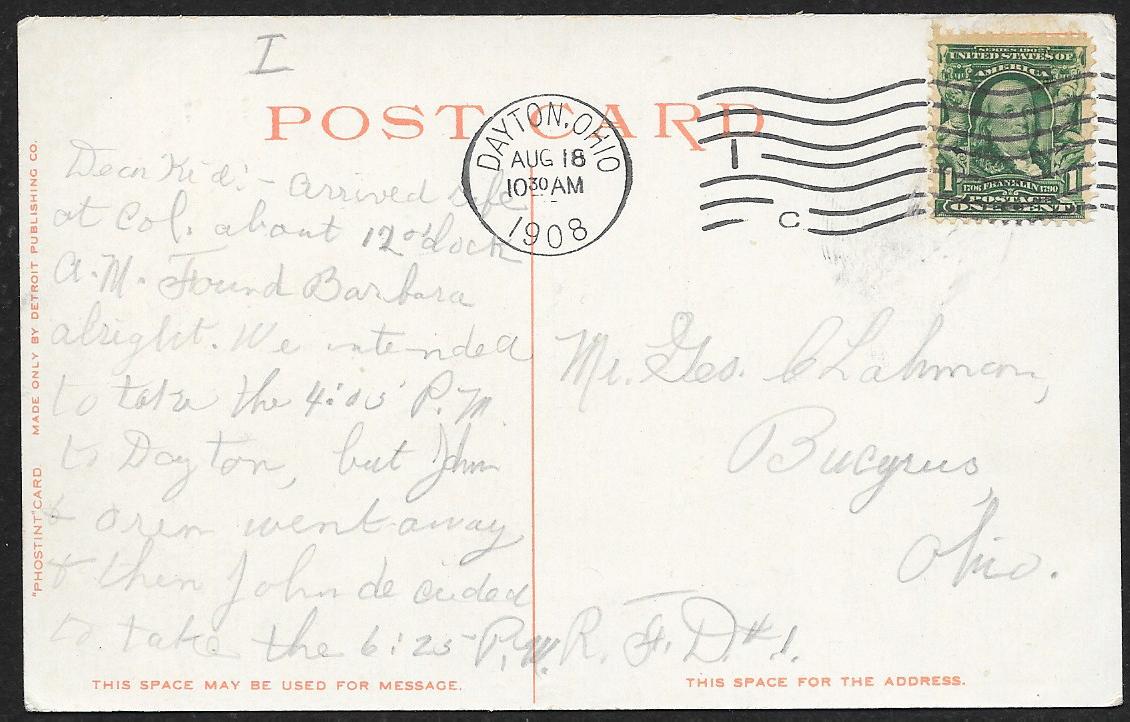 I
POST CARD
DAYTON, OHIO
AUG 18
10 30 AM
1908
I
C
SERIES 1902
UNITED STATES OF
AMERICA
1706 FRANKLIN 1790
1 1
POSTAGE
ONE CENT
Dear Kid:- arrived safe
at Col. about 12 o'clock
A.M. Found Barbara
alright. We intended
to take the 4:05 P.M
to Dayton, but John
& Oren went away
& then John de cided
to take the 6:25 P.M.
Mr. Geo. C Lahman,
Bucyrus,
Ohio.
R. F. D # 1.
"PHOSTINT" CARD MADE ONLY BY DETROIT PUBLISHING CO.
THIS SPACE MAY BE USED FOR MESSAGE.
THIS SPACE FOR THE ADDRESS.